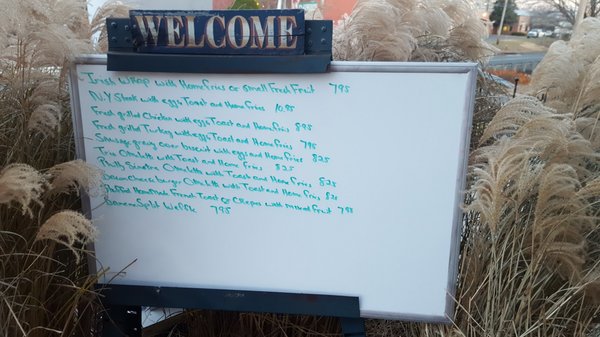 WELCOME
Irish Wrap with Homefries or small Fresh Fruit 795
DLY Steak with eggs Toast and Home fries 1095
Fresh grilled Chicken with eggs Toast and Home fries 895
Fresh grilled Turkey with eggs Toast and Home fries 795
Sausage gravy over biscuit with eggs and Home fries 825
Omelette with Toast and Home fries 825
Philly Omelette with Toast and Home fries 825
Omelette with Toast and Home fries
French Toast or Crepes with mixed fruit 795
Banana Split Waffle 795